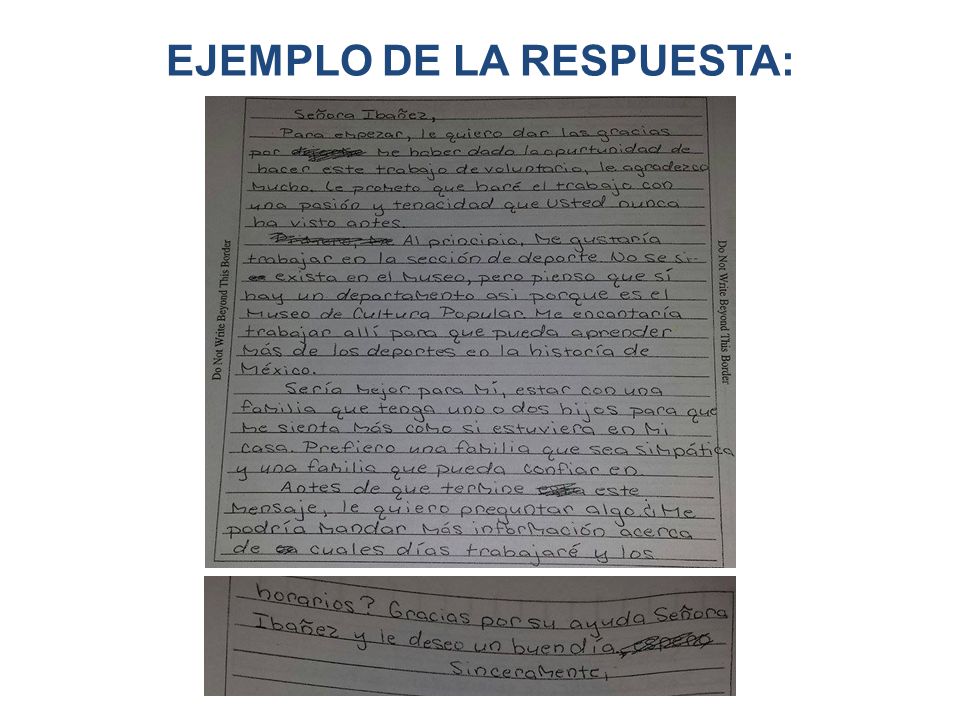 EJEMPLO DE LA RESPUESTA:
Señora Ibañez,
Para empezar, le quiero dar las gracias
por me haber dado la opurtunidad de
hacer este trabajo de voluntario, le agradezco
mucho. Le prometo que haré el trabajo con
una pasión y tenacidad que usted nunca
ha visto antes.
Al principio, me gustaría
trabajar en la sección de deporte. No se si
exista en el museo, pero pienso que sí
hay un departamento asi porque es el
Museo de Cultura Popular. Me encantaría
trabajar allí para que pueda aprender
más de los deportes en la historía de
México.
Sería mejor para mí, estar con una
familia que tenga uno o dos hijos para que
me sienta más como si estuviera en mi
casa. Prefiero una familia que sea simpática
y una familia que pueda confiar en.
Antes de que termine este
mensaje, le quiero preguntar algo: ¿Me
podría mandar más información acerca
de cuales días trabajaré y los
Do Not Write Beyond This Border
Do Not Write Beyond This Border
horarios? Gracias por su ayuda Señora
Ibañez y le deseo un buen día
Sinceramente,